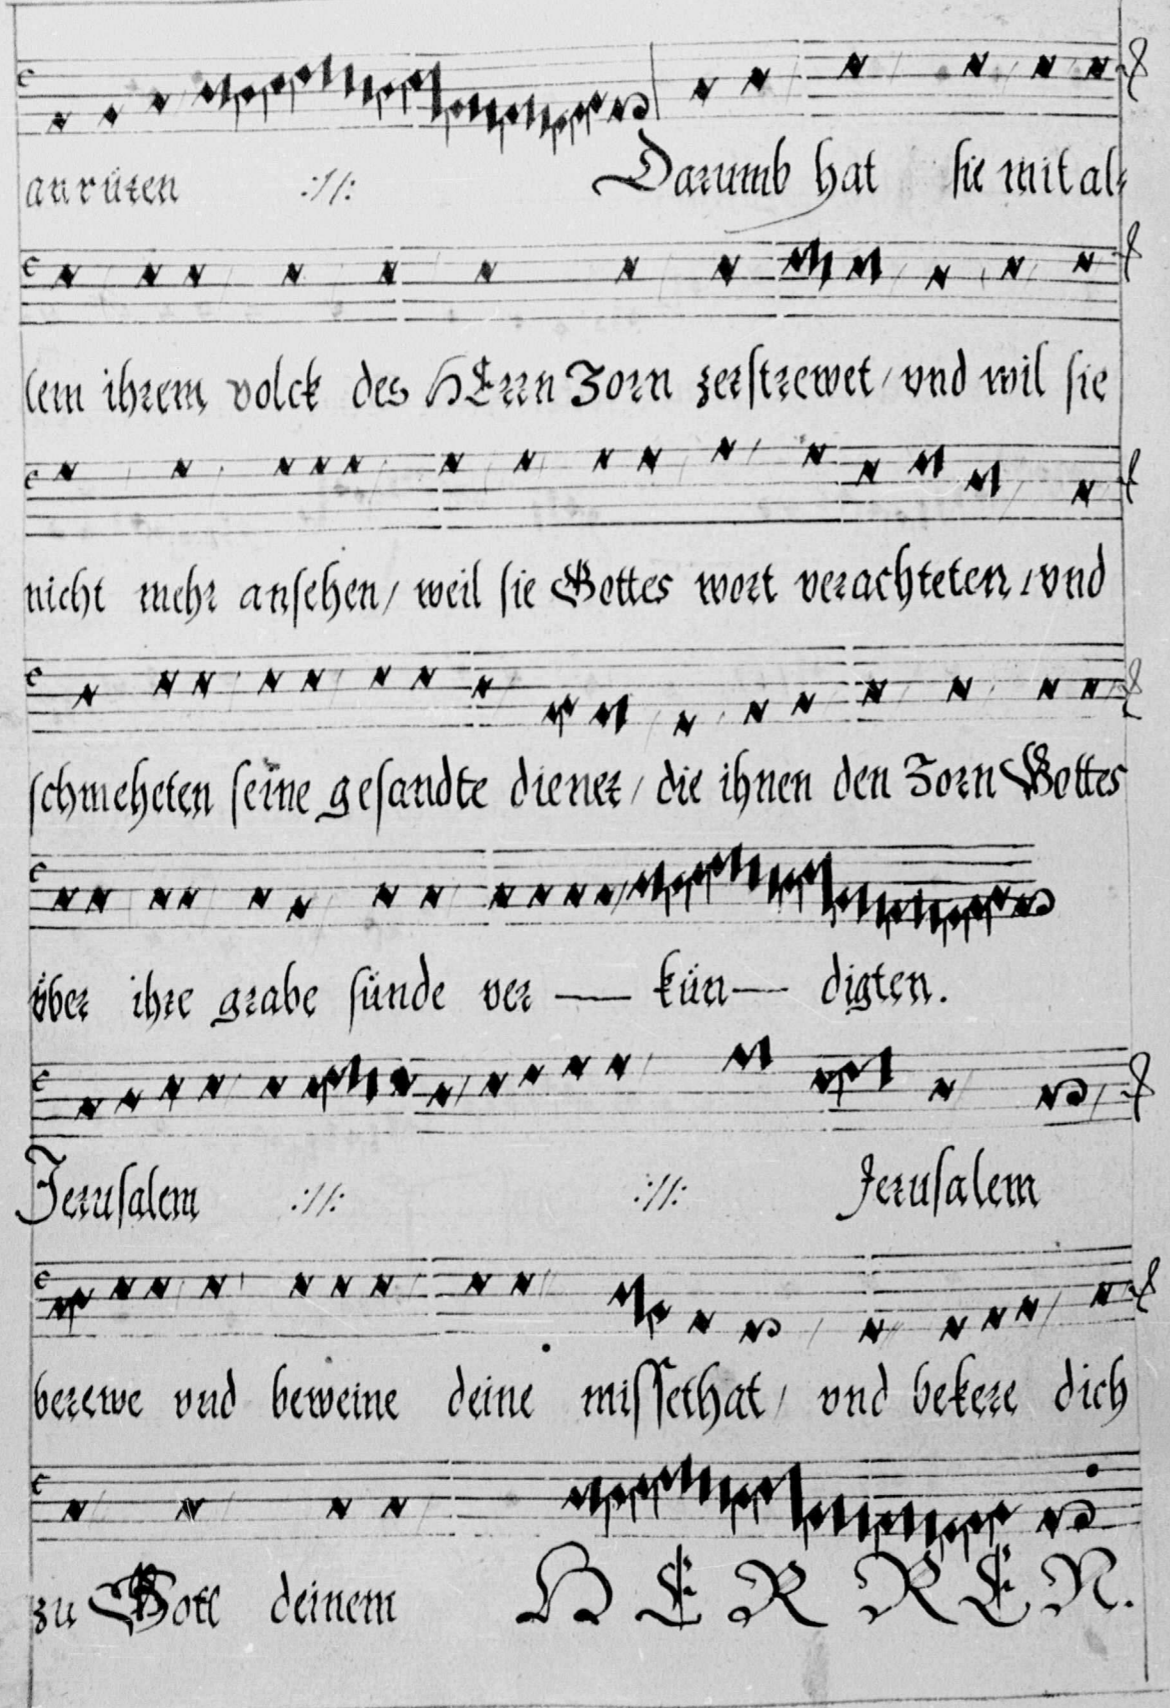 anrüren :/: Darumb hat sie mit al⸗
lem ihrem volck des HErrn Zorn zerstrewet/ vnd wil sie
nicht mehr ansehen/ weil sie Gottes wort verachteten/ vnd
schmeheten seine gesandte diener/ die ihnen den Zorn Gottes
über ihre grabe sünde ver — kün — digten.
Jerusalem :/: :/: Jerusalem
berewe vnd beweine deine missethat/ vnd bekere dich
zu Gott deinem HERREN.